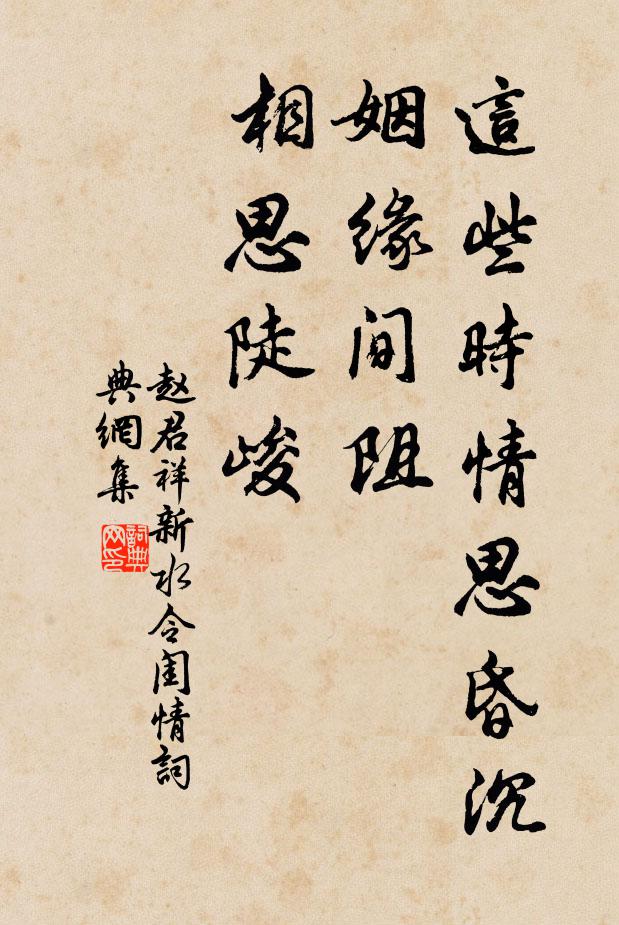 這些時情思昏沉
姻緣間阻
相思陡峻
赵君祥新水令闺情詞
典網集
詞典网印